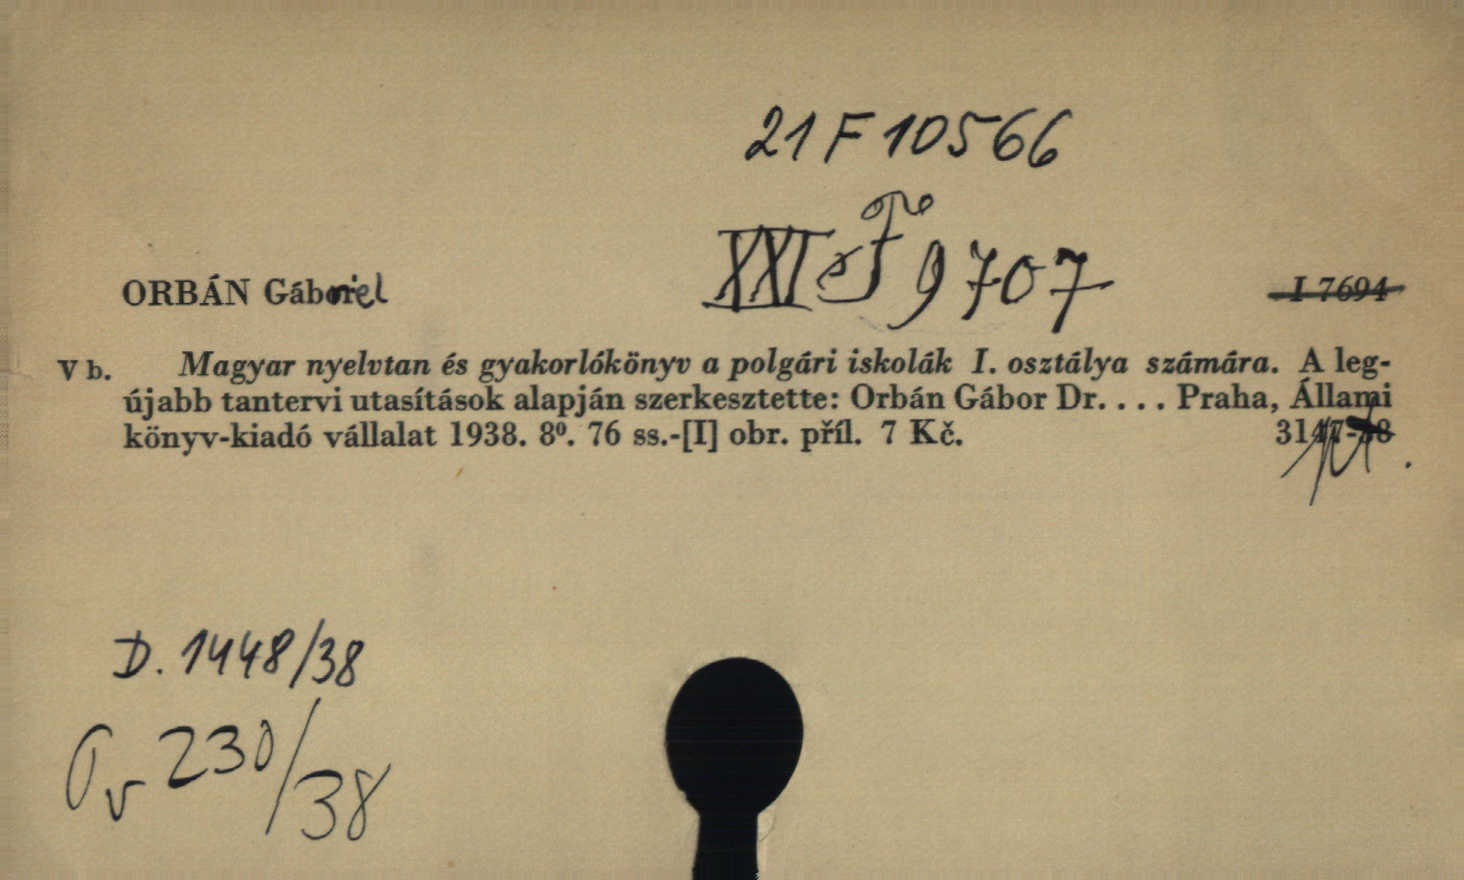 21 F 10566
XXI e F 9707
ORBÁN Gábriel
I 7694
V b. Magyar nyelvtan és gyakorlókönyv a polgári iskolák I. osztálya számára. A leg-
újabb tantervi utasítások alapján szerkesztette: Orbán Gábor Dr. . . . Praha, Állami
könyv-kiadó vállalat 1938. 8⁰. 76 ss.-[I] obr. příl. 7 Kč. 3147-38
D. 1448/38
230/38